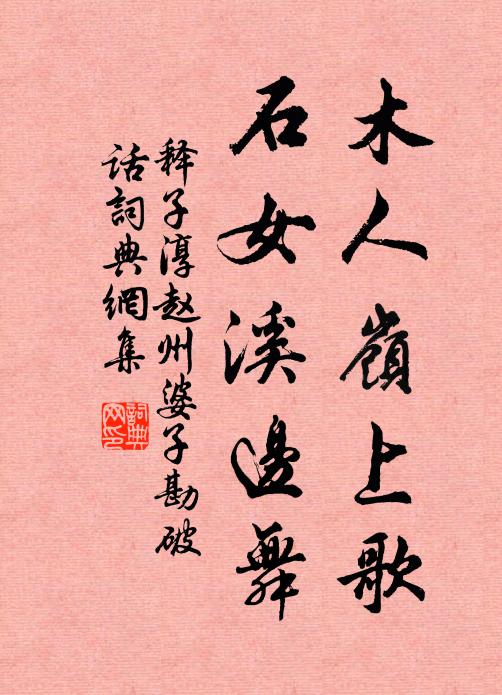 木人嶺上歌
石女溪邊舞
释子淳赵州婆子勘破
话詞典網集
詞典網印